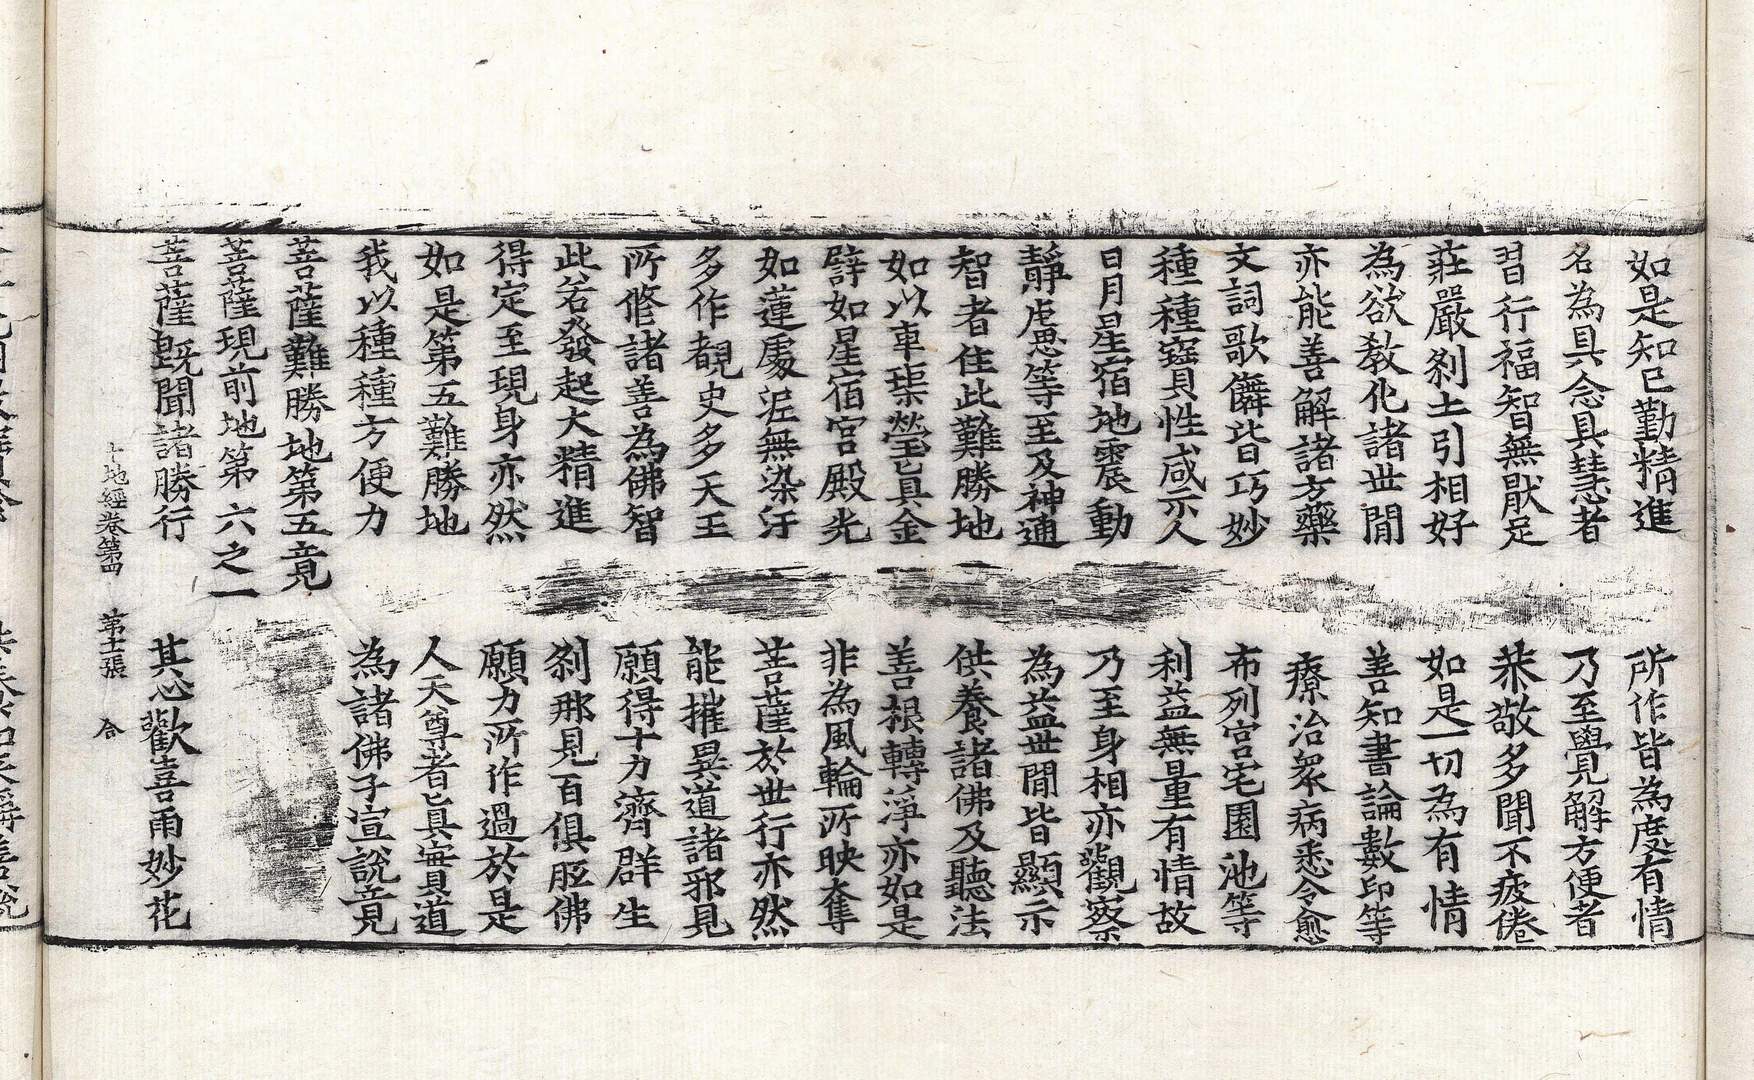 如是知已勤精進　所作皆為度有情
名為具念具慧者　乃至覺解方便者
習行福智無猒足　恭敬多聞不疲倦
莊嚴剎土引相好　如是一切為有情
為欲教化諸世間　善知書論數印等
亦能善解諸方藥　療治衆病悉令愈
文詞歌儛皆巧妙　布列宮宅園池等
種種寶性咸示人　利益無量有情故
日月星宿地震動　乃至身相亦觀察
靜慮等至及神通　為益世間皆顯示
智者住此難勝地　供養諸佛及聽法
如以車璖瑩真金　善根轉淨亦如是
譬如星宿宮殿光　非為風輪所映奪
如蓮處泥無染汙　菩薩於世行亦然
多作覩史多天王　能摧異道諸邪見
所修諸善為佛智　願得十力濟群生
此若發起大精進　剎那見百俱胝佛
得定至現身亦然　願力所作過於是
如是第五難勝地　人天尊者真實道
我以種種方便力　為諸佛子宣說竟
菩薩難勝地第五竟
菩薩現前地第六之一
菩薩既聞諸勝行　其心歡喜雨妙花
十地經卷第四　第十二張　合